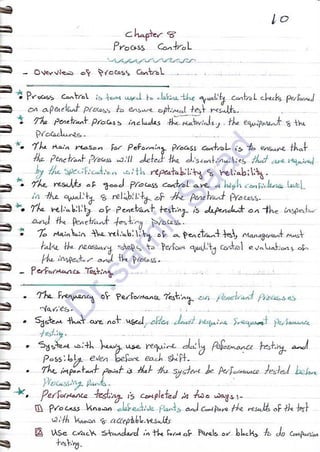 10
Chapter 8
Process Control
- Overview of Process Control
• Process Control is term used to define the quality control checks performed
on a penetrant process to ensure optimal test results.
• The penetrant Process includes the materials, the equipment & the
Procedures.
• The main reason for Peforming Process control is to ensure that
the Penetrant Process will detect the discontinuities that are required
by the specification with repeatability & reliability.
• The results of good Process control are a high confidence level
in the quality & reliability of the Penetrant Process.
• The reliability of Penetrant testing is dependant on the inspector
and the Penetrant testing Process.
• To maintain the reliability of a penetrant test, management must
take the necessary steps to Perform quality control evaluations of
the inspector and the Process.
- Performance Testing
• The Frequency of Performance Testing on Penetrant Processes
varies.
• System that are not used often don't require frequent performance
testing.
• System with heavy use require daily Performance testing and
Possibly even before each shift.
• The important point is that the system be Performance tested before
Processing Parts.
• Performance testing is completed in two ways:-
1 Process Known defective Parts and compare the results of the test
with known & acceptable results
2 Use crack standard in the form of Panels or blocks to do comparison
testing.